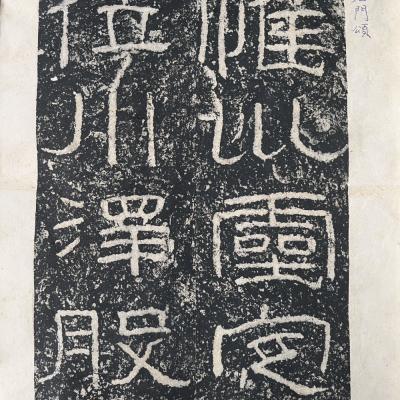 石門頌
惟巛靈定
位川澤股